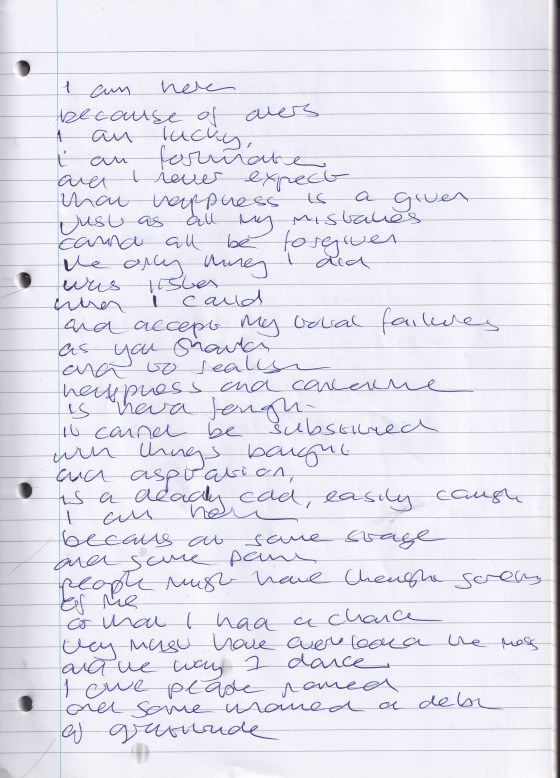 I am here
because of others
I am lucky,
i am fortunate
and I never expect
that happiness is a given
Just as all my mistakes
cannot all be forgiven
the only thing I did
was listen
when I could
and accept my total failures
as you should
and to realise
happiness and
is hard fought
it cannot be substituted
with things bought
and aspiration,
is a deadly cold, easily caught
I am here
because at some stage
and some point
people must have thought
of me
or that I had a chance
they must have overlooked the mess
and the way I dance
I owe people named
and some unnamed a debt
of gratitude